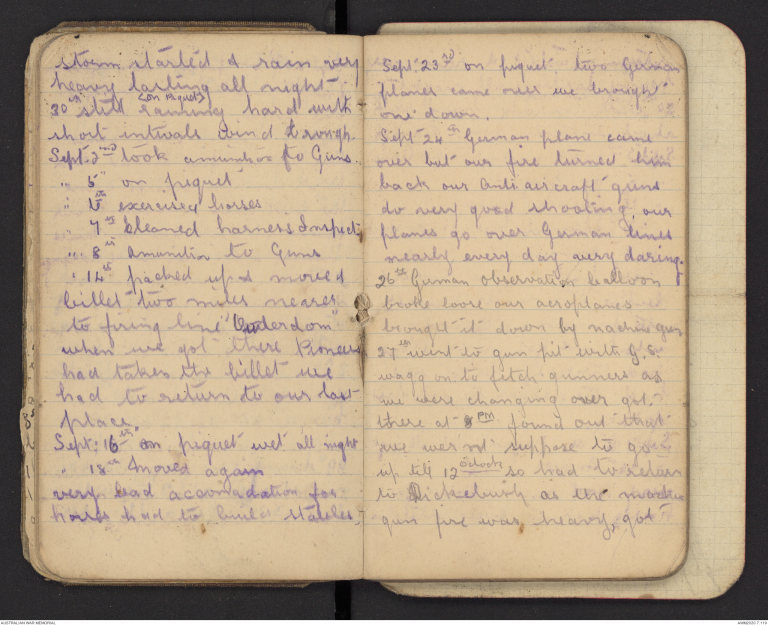 storm started & rain very
heavy lasting all night.
(on Piquet)
30th still rainning hard with
short intivals wind through.
Sept. 2nd took amunition to Guns
" 5" on piquet
" 6th exercised horses
" 7th cleaned harness Inspect
" 8th amunition to Guns
" 14th packed up & moved
billet two miles nearer
to firing line "Ouderdom"
when we got there Pioneers
had taken the billet we
had to return to our last
place.
Sept. 16th on piquet wet all night
" 18th moved again
very bad accomadation for
horses had to build stables.
Sept. 23rd on piquet. two German
planes came over we brought
one down.
Sept 24th German plane came
over but our fire turned him
back our anti aircraft guns
do very good shooting, our
planes go over German lines
nearly every day very daring.
26th German observation balloon
broke loose our aeroplanes
brought it down by machine gun
27th went to gun pit with G.S.
waggon to fetch gunners as
we were changing over got
there at 8 PM found out that
we were not suppose to go
up till 12 oclock so had to return
to Dickebush as the machine
gun fire was heavy, got
AUSTRALIAN WAR MEMORIAL
AWM2020.7.119